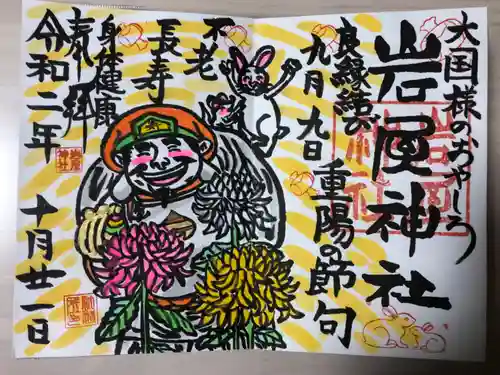 大国様のおやしろ
岩屋神社
良縁結び
九月九日 重陽の節句
不老
長寿
身体健康
奉拝
令和二年 十月廿一日
岩屋
神社